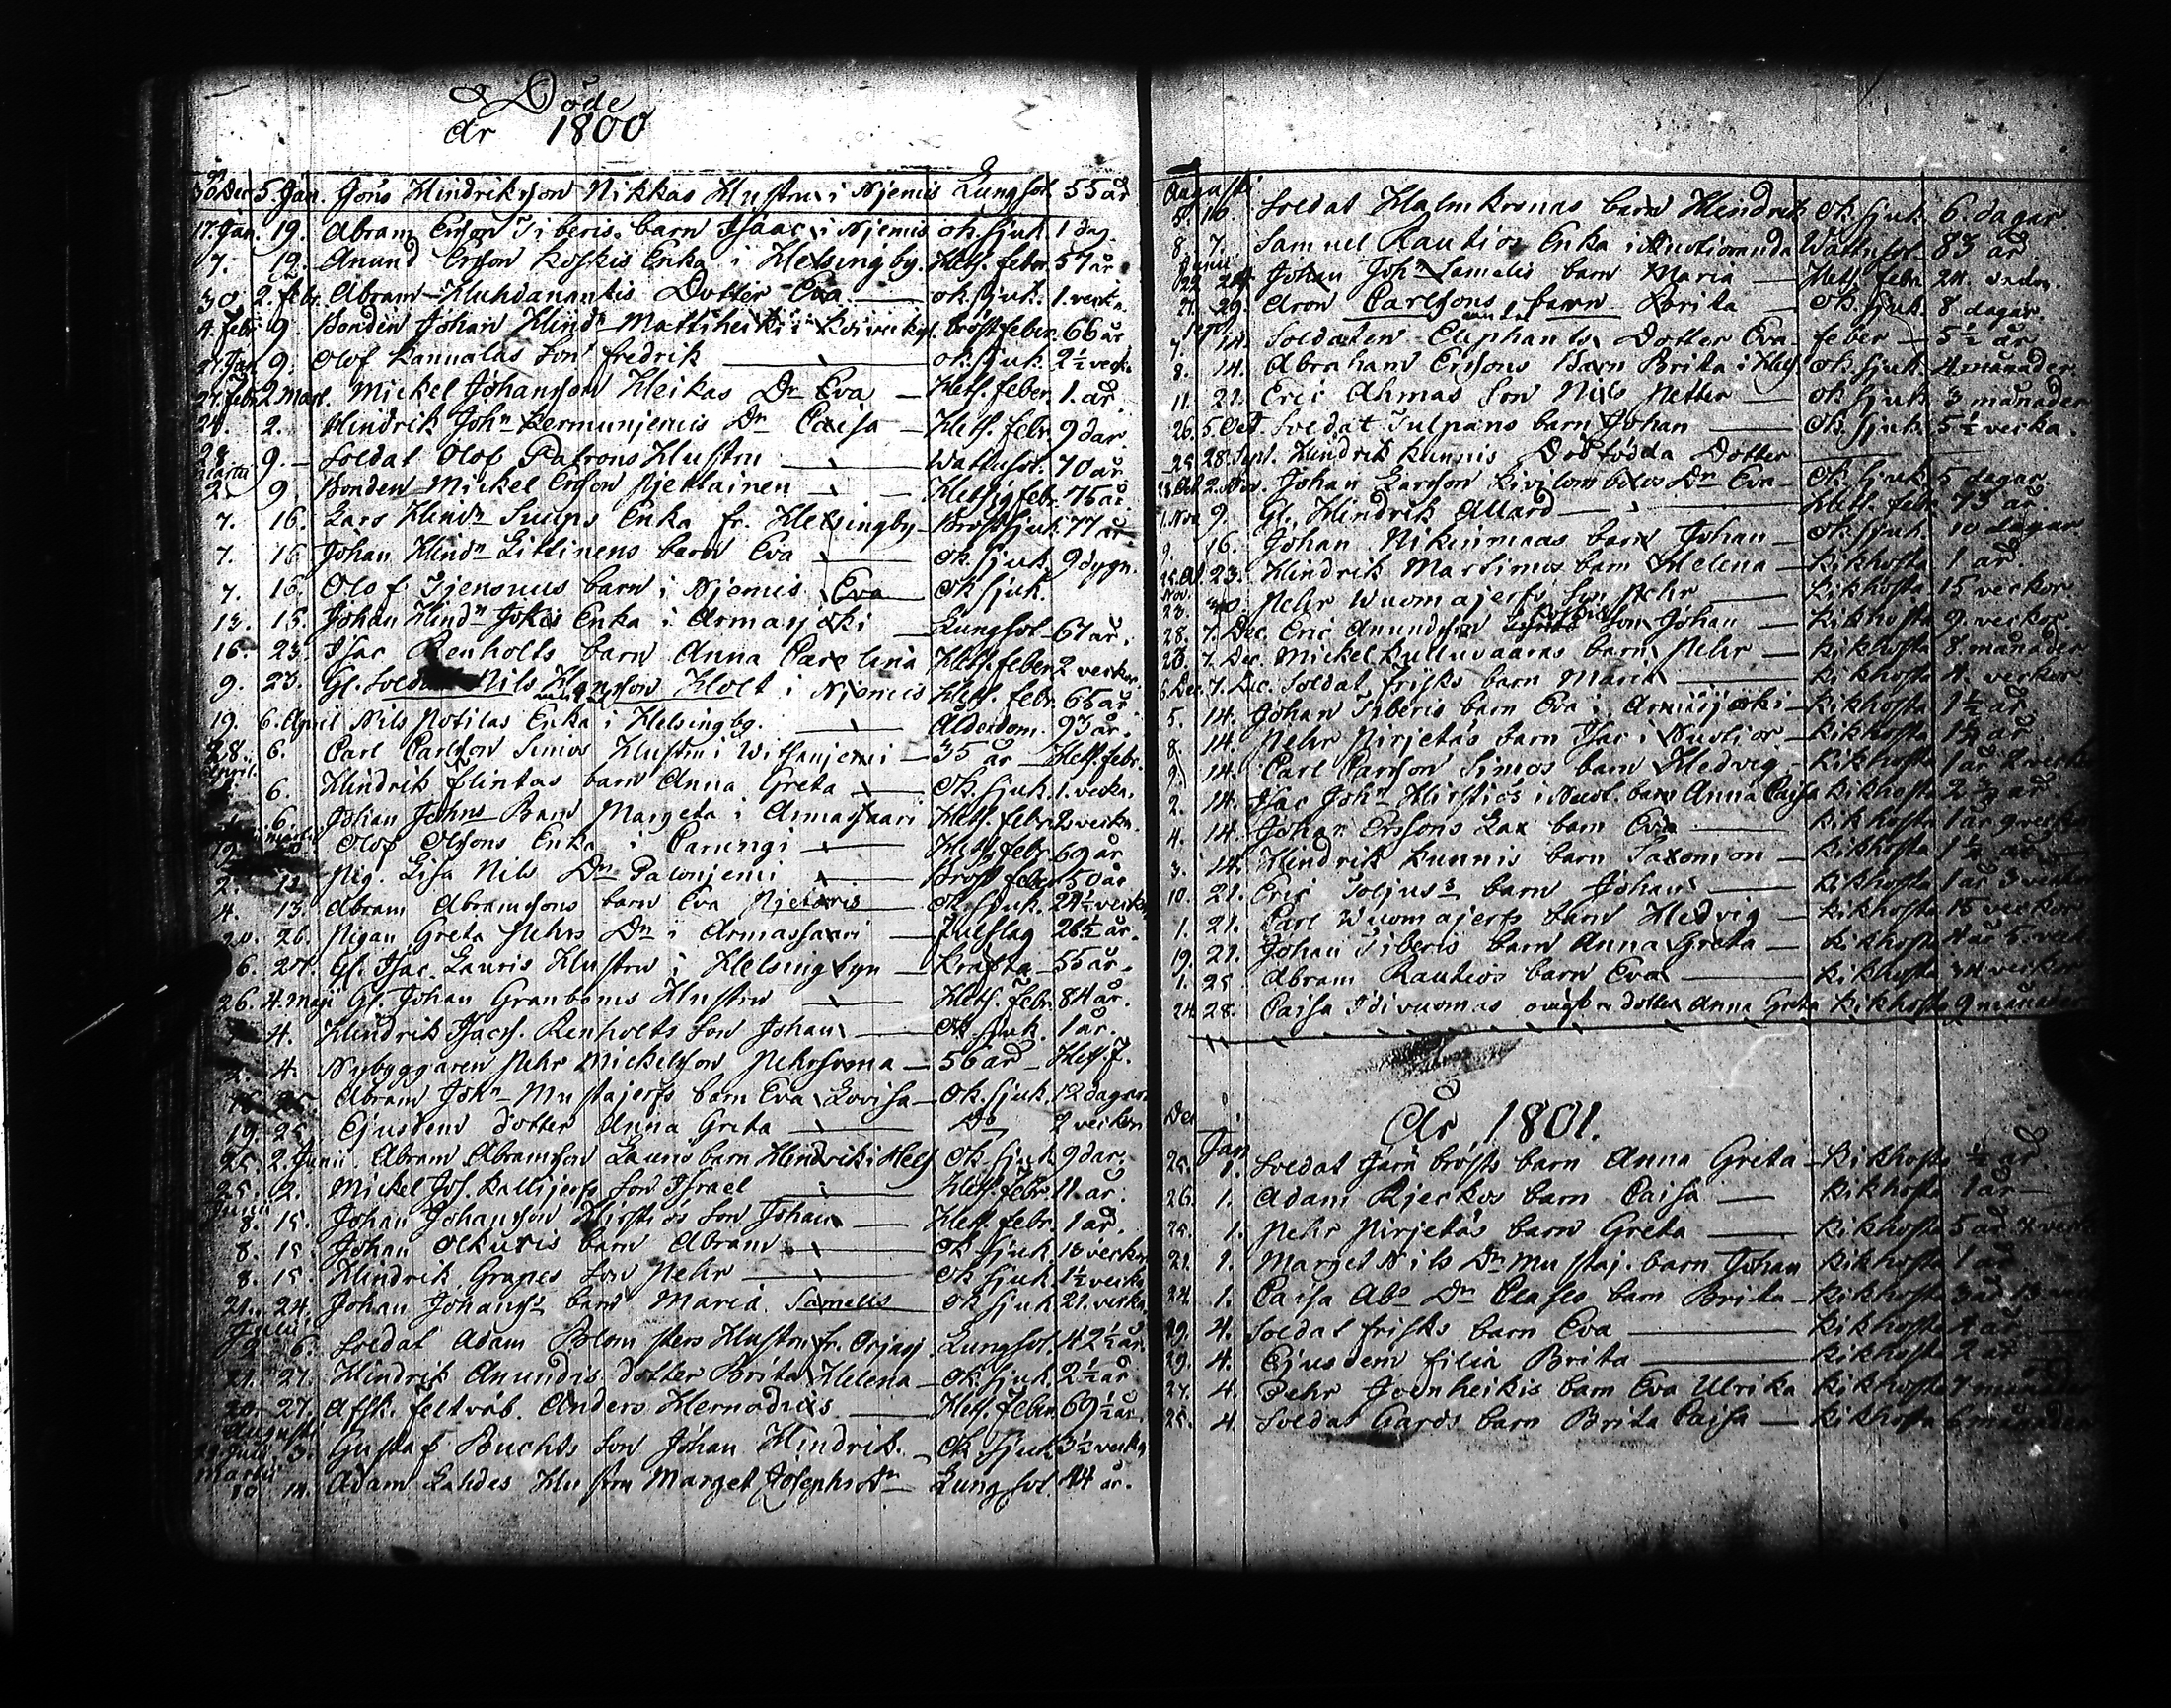 Döde
år 1800
30 Dec 5. Jan. Jöns Hindriksson Nikkas Hustru i Njemis Lungsot 55 år
17. Jan. 19. Abram Ersson Tiberis. barn Isaac i Njemis ok. sjuk. 1 dag.
7. 19. Anund Ersson Koskis Enka i Helsingby. Hets. feber. 57 år
30. 2. febr. Abram Huhdanantis Dotter Eva ok. sjuk. 1. veck.
4 febr. 9. Bonden Johan Hindn Mattiheiki i bröstfeber. 66 år
27. Jan 9. Olof Kannalas Son fredrik ok. sjuk. 2½ veck.
27. febr. 2. Mars. Mickel Johansson Heikas Dr Eva Hets. feber 1. år.
24. 2. Hindrik John Kermunjemis Dr Caisa Hets. febr. 9 dar.
28 9. Soldat Olof Patrons Hustru Wattusot. 70 år
martii 2. 9. Bonden Mickel Ersson Pjettainen Hetsig febr. 75 år.
7. 16. Lars Hindn Suups Enka fr. Helsingby Bröstsjuk. 77 år
7. 16 Johan Hindn Littinens barn Eva ok. sjuk. 9 dygn.
7. 16. Olof Tjenouus barn i Njemis Eva ok sjuk.
13. 15. Johan Hindn Jokis Enka i Armasjoki Lungsot 67 år.
16. 23. Isac Renholts barn Anna Carolina Hets. feber 2 veckor.
9. 23. Gl. Soldat Nils Hansson Holt i Njemis Hets. febr. 65 år
19. 6. April Nils Potilas Enka i Helsingby. Ålderdom. 93 år.
28. 6. Carl Carlsson Simos Hustru i Witsanjemi 35 år Hets. febr.
April. 6. Hindrik flintas barn Anna Greta ok. sjuk. 1. vecka.
6. Johan Johns Barn Margeta i Armassaari Hets. febr. 2 veckor.
Olof Olsons Enka i Carungi Hets. febr. 69 år
2. 12 Pig. Lisa Nils Dr Palonjemi Bröst feber 50 år
4. 13. Abram Abramssons barn Eva Pjetaris ok. sjuk. 24½ veck
20. 26. Pigan Greta Pehrs Dr i Armassaari 26½ år.
6. 27. Gl. Isac. Lauris Hustru i Helsingbyn Kräfta 55 år.
26. 4. Maji Gl. Johan Granboms Hustru Hets. febr. 84 år.
4. Hindrik Isacs. Renholts Son Johan ok sjuk. 1 år.
2. 4. Nybyggaren Pehr Mickelsson Pehrsvoma 56 år Hets. f.
16 25. Abram John Mustajerfs barn Eva Lovisa ok. sjuk. 12 dagar
19. 25 Ejusdem dotter Anna Greta Do 2 veckor
25. 2. Junii. Abram Abramsson Lauris barn Hindrik i Hels ok. sjuk 9 dar.
25. 2. Mickel Joh. Kallijerfs Son Israel Hets. febr. 11. år.
Junii 8. 15. Johan Johansson Hirstios Son Johan Hets. febr. 1 år.
8. 15. Johan Olkuris barn Abram ok sjuk 13 veckor
8. 15. Hindrik Grapes Son Pehr ok sjuk. 1½ vecka
21. 24. Johan Johanss barn Maria Samelis ok sjuk 21. vecka
Julii 6. Soldat Adam Blomsters Hustru fr. Orjasj. Lungsot. 42½ år.
21. 27. Hindrik Anundis dotter Brita Helena ok. sjuk. 2½ år
20 27. Afsk. feltväb. Anders Hernodius Hets. feber. 69½ år.
Augusti 3. Gustaf Buchts Son Johan Hindrik. ok. sjuk. 3½ veck
Martii 10 14. Adam Lahdes Hustru Marget Josephs Dr Lungsot. 44 år.
Augusti
5. 10. Soldat Halmkronas barn Hindrik ok. sjuk 6. dagar
8. 7. Samuel Rautios Enka i Wattusot 83 år
Junii 22 24. Johan John Samelis barn Maria Hets. febr 24.
21. 29. Aron Carlssons barn Brita ok. sjuk. 8 dagar.
Sept. 7. 14. Soldaten Eliphants Dotter Eva feber 5½ år
8. 14. Abraham Erssons Barn Brita i Hels ok. sjuk. 4 månader
11. 21. Eric Ahmas Son Nils Petter ok sjuk 3 månader
26. 5. Oct. Soldat Tulpans barn Johan ok. sjuk. 5½ vecka.
25 28. Sept. Hindrik Kunnis Dödfödda Dotter
18. Oct 2. Nov. Johan Larsson Kivilombolos Dr Eva ok sjuk 5 dagar.
1. Nov 9. Gl. Hindrik Allard Hets. febr 73 år.
9. 16. Johan Nikinmaas barn Johan ok sjuk 10 dagar
23. Hindrik Martimos barn Helena Kikhosta 1 år
Nov. 23. 30. Pehr Wuomajerfs Son Pehr Kikhosta 15 veckor
28. 7. Dec. Eric Anundsson Koskis son Johan Kikhosta 9. veckor
28. 7. Dec. Mickel Kulluvaaras barn Pehr Kikhosta 8. månader
6 Dec. 7. Dec. Soldat frisks barn Maria Kikhosta 4. veckor
5. 14. Johan Tiberis barn Eva i Armasjoki Kikhosta 1½ år.
8. 14. Pehr Pirjetäs barn Isac i Nuotior. Kikhosta 1½ år
9. 14. Carl Carlsson Simos barn Hedvig Kikhosta 1 år
2. 14. Isac John Hirstiös i Nuot. barn Anna Caisa Kikhosta
4. 14. Johan Erssons Lax barn Eva Kikhosta 1 år 9 veckor
3. 14. Hindrik Kunnis barn Salomon Kikhosta
10. 21. Eric Toljus barn Johan Kikhosta 1 år 3 veckor
1. 21. Carl Wuomajerfs barn Hedvig Kikhosta 15 veckor
19. 21. Johan Tiberis barn Anna Greta Kikhosta
1. 25 Abram Rautios barn Eva Kikhosta 34 veckor
24. 28. Caisa Idivuomas oägta dotter Anna Greta Kikhosta 9 månader
År 1801.
Dec Jan
25. 1. Soldat Järnbrösts barn Anna Greta Kikhosta ½ år
26. 1. Adam Rjeckos barn Caisa Kikhosta 1 år
25. 1. Pehr Pirjetäs barn Greta Kikhosta 5 år
21. 1. Marget Nils Dr Mustaj. barn Johan Kikhosta 1 år
22. 1. Caisa Abr Dr Clases barn Brita Kikhosta 3 år 13
29. 4. Soldat frisks barn Eva Kikhosta 4 år
29. 4. Ejusdem filia Brita Kikhosta 2 år
27. 4. Pehr Joenheikis barn Eva Ulrika Kikhosta 7 månader
25. 4. Soldat Gards barn Brita Caisa Kikhosta 6 månader